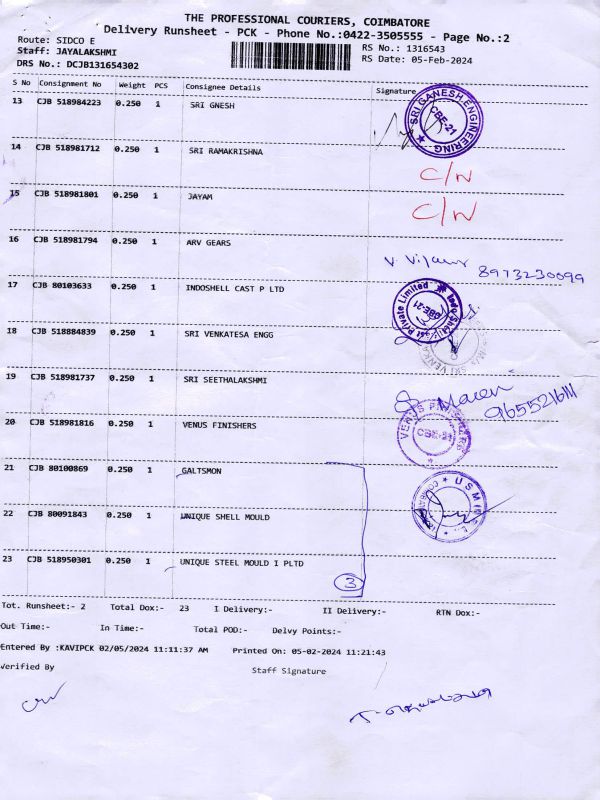 THE PROFESSIONAL COURIERS, COIMBATORE
Delivery Runsheet - PCK - Phone No.:0422-3505555 - Page No.:2
Route: SIDCO E RS No.: 1316543
Staff: JAYALAKSHMI RS Date: 05-Feb-2024
DRS No.: DCJB131654302
S No Consignment No Weight PCS Consignee Details Signature
13 CJB 518984223 0.250 1 SRI GNESH
SRI GANESH ENGINEERING CBE-21
14 CJB 518981712 0.250 1 SRI RAMAKRISHNA
C/N
15 CJB 518981801 0.250 1 JAYAM
C/N
16 CJB 518981794 0.250 1 ARV GEARS
8973230099
17 CJB 80103633 0.250 1 INDOSHELL CAST P LTD
Private Limited CBE-21
18 CJB 518884839 0.250 1 SRI VENKATESA ENGG
SRI
19 CJB 518981737 0.250 1 SRI SEETHALAKSHMI
20 CJB 518981816 0.250 1 VENUS FINISHERS
VENUS CBE-21
21 CJB 80100869 0.250 1 GALTSMON
22 CJB 80091843 0.250 1 UNIQUE SHELL MOULD
23 CJB 518950301 0.250 1 UNIQUE STEEL MOULD I PLTD
3
Tot. Runsheet:- 2 Total Dox:- 23 I Delivery:- II Delivery:- RTN Dox:-
Out Time:- In Time:- Total POD:- Delvy Points:-
Entered By :KAVIPCK 02/05/2024 11:11:37 AM Printed On: 05-02-2024 11:21:43
Verified By Staff Signature